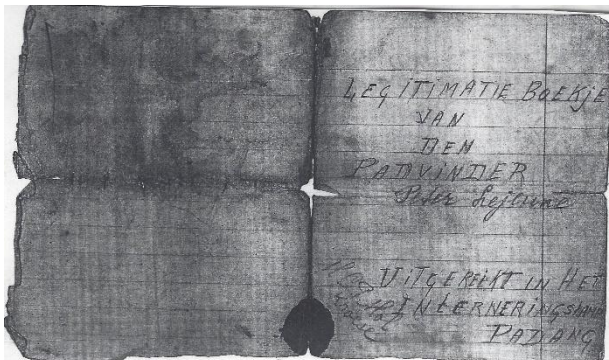 LEGITIMATIE BOEKJE
VAN
DEN
PADVINDER
Peter Lejeune
UITGEREIKT IN HET
INTERNERINGSKAMP
PADANG